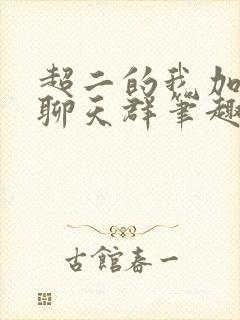 超二的我加
聊天群笔趣
古館春一